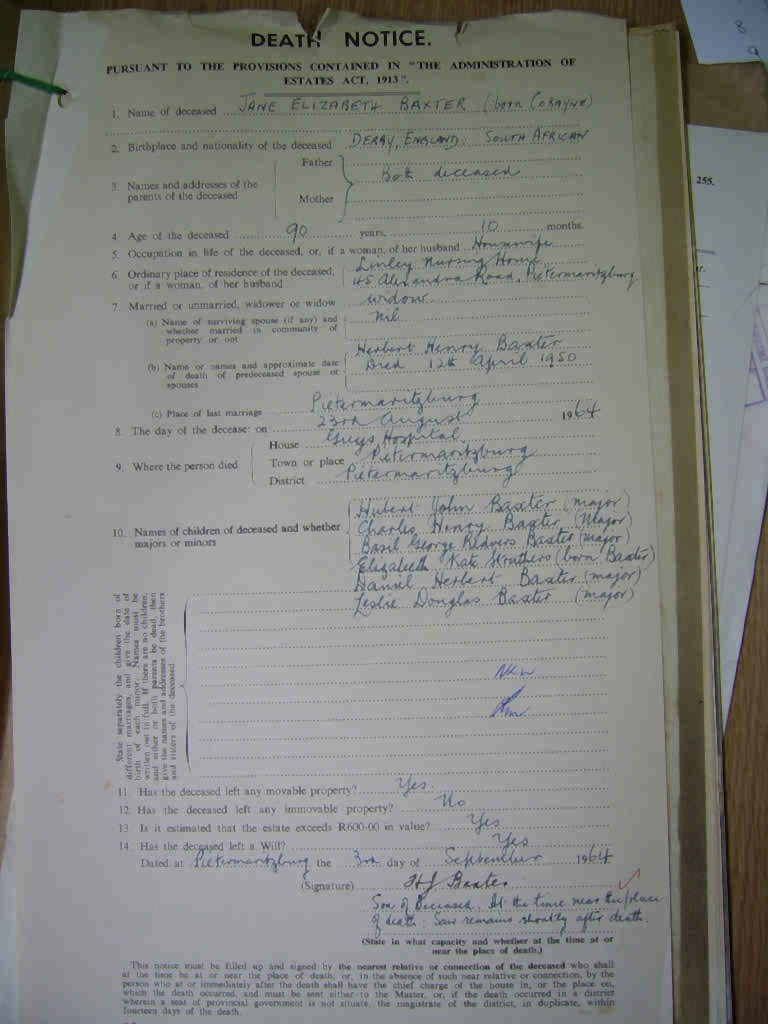 DEATH NOTICE.
PURSUANT TO THE PROVISIONS CONTAINED IN "THE ADMINISTRATION OF
ESTATES ACT, 1913".
1. Name of deceased JANE ELIZABETH BAXTER (born CORAYNE)
2. Birthplace and nationality of the deceased DERBY, ENGLAND. SOUTH AFRICAN
3. Names and addresses of the parents of the deceased
Father
Mother
Both deceased
4 Age of the deceased 90 years, 10 months.
5. Occupation in life of the deceased, or, if a woman, of her husband Housewife
6. Ordinary place of residence of the deceased, or if a woman, of her husband
Linley Nursing Home
45 Alexandra Road, Pietermaritzburg
7. Married or unmarried, widower or widow widow
(a) Name of surviving spouse (if any) and
whether married in community of
property or not
nil
(b) Name or names and approximate date
of death of predeceased spouse or
spouses
Herbert Henry Baxter
Died 12th April 1950
(c) Place of last marriage Pietermaritzburg
8. The day of the decease: on 23rd August 1964
9. Where the person died
House Greys Hospital
Town or place Pietermaritzburg
District Pietermaritzburg
10. Names of children of deceased and whether
majors or minors
Hubert John Baxter (major)
Charles Henry Baxter (Major)
Basil George Redvers Baxter (major)
Elizabeth Kate Struthers (born Baxter)
Daniel Herbert Baxter (major)
Leslie Douglas Baxter (major)
State separately the children born of
different marriages, and give the date of
birth of each minor. Names must be
written out in full. If there are no children,
and either or both parents be dead, then
give the names and addresses of the brothers
and sisters of the deceased
11. Has the deceased left any movable property? Yes.
12. Has the deceased left any immovable property? No
13. Is it estimated that the estate exceeds R600-00 in value? Yes
14. Has the deceased left a Will? Yes
Dated at Pietermaritzburg the 3rd day of September 1964
(Signature) HJ Baxter
Son of Deceased. At the time near the place
of death. Saw remains shortly after death.
(State in what capacity and whether at the time at or
near the place of death.)
This notice must be filled up and signed by the nearest relative or connection of the deceased who shall
at the time be at or near the place of death, or, in the absence of such near relative or connection, by the
person who at or immediately after the death shall have the chief charge of the house in, or the place on,
which the death occurred, and must be sent either to the Master, or, if the death occurred in a district
wherein a seat of provincial government is not situate, the magistrate of the district, in duplicate, within
fourteen days of the death.
255.